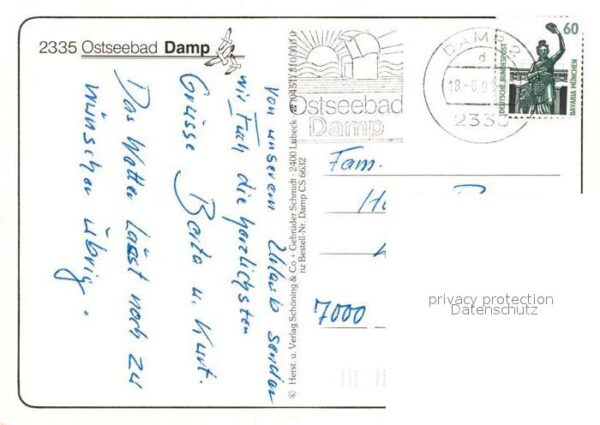 2335 Ostseebad Damp
von unserem Urlaub senden
wir Euch die herzlichsten
Grüsse Berta u. Kurt.
Das Wetter lässt noch zu
wünschen übrig.
© Herst. u. Verlag Schöning & Co + Gebrüder Schmidt · 2400 Lübeck
nz Bestell-Nr. Damp CS 6632
Ostseebad
Damp
DAMP
d
18.-6.9
2335
60
DEUTSCHE BUNDESPOST
BAVARIA MÜNCHEN
Fam.
7000
privacy protection
Datenschutz